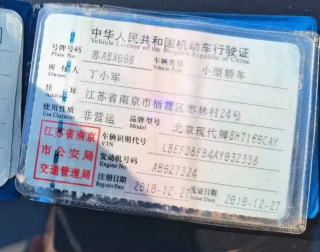 中华人民共和国机动车行驶证
Vehicle License of the People's Republic of China
号牌号码 苏ABX688 车辆类型 小型轿车
Plate No. Vehicle Type
所有人 丁小军
Owner
住址 江苏省南京市栖霞区枣林村24号
Address
使用性质 非营运 品牌型号 北京现代牌BH7160CAY
Use Character Model
江苏省南京
市公安局
交通管理局
车辆识别代号 LBEFDBFB4AY032338
VIN
发动机号码 AB927324
Engine No.
注册日期 2010-12-27 发证日期 2010-12-27
Register Date Issue Date